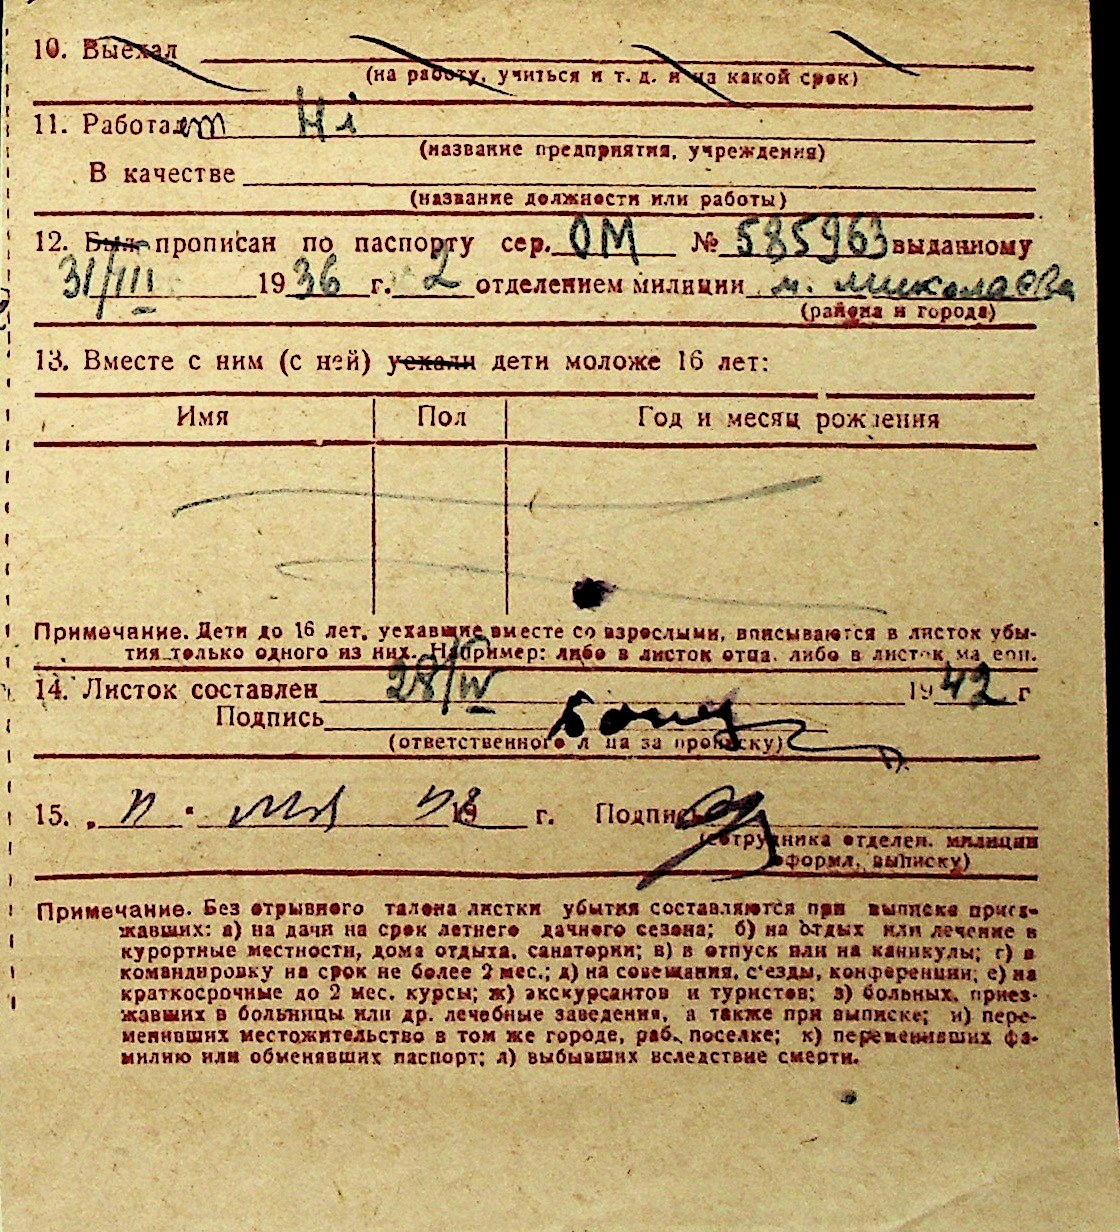 10. Выехал
(на работу, учиться и т. д. и на какой срок)
11. Работает Ні
(название предприятия, учреждения)
В качестве
(название должности или работы)
12. Был прописан по паспорту сер. ОМ № 585963 выданному
31/III 1936 г. 2 отделением милиции м. Миколаєва
(района и города)
13. Вместе с ним (с ней) уехали дети моложе 16 лет:
Имя Пол Год и месяц рождения
Примечание. Дети до 16 лет, уехавшие вместе со взрослыми, вписываются в листок убы-
тия только одного из них. Например: либо в листок отца, либо в листок матери.
14. Листок составлен 28/IV 1942 г
Подпись
(ответственного лица за прописку)
15. „ 11 " мая 19 г. Подпись
(сотрудника отделен. милиции
оформл. выписку)
Примечание. Без отрывного талона листки убытия составляются при выписке приез-
жавших: а) на дачи на срок летнего дачного сезона; б) на отдых или лечение в
курортные местности, дома отдыха, санатории; в) в отпуск или на каникулы; г) в
командировку на срок не более 2 мес.; д) на совещания, с'езды, конференции; е) на
краткосрочные до 2 мес. курсы; ж) экскурсантов и туристов; з) больных, приез-
жавших в больницы или др. лечебные заведения, а также при выписке; и) пере-
менивших местожительство в том же городе, раб. поселке; к) переменивших фа-
милию или обменявших паспорт; л) выбывших вследствие смерти.